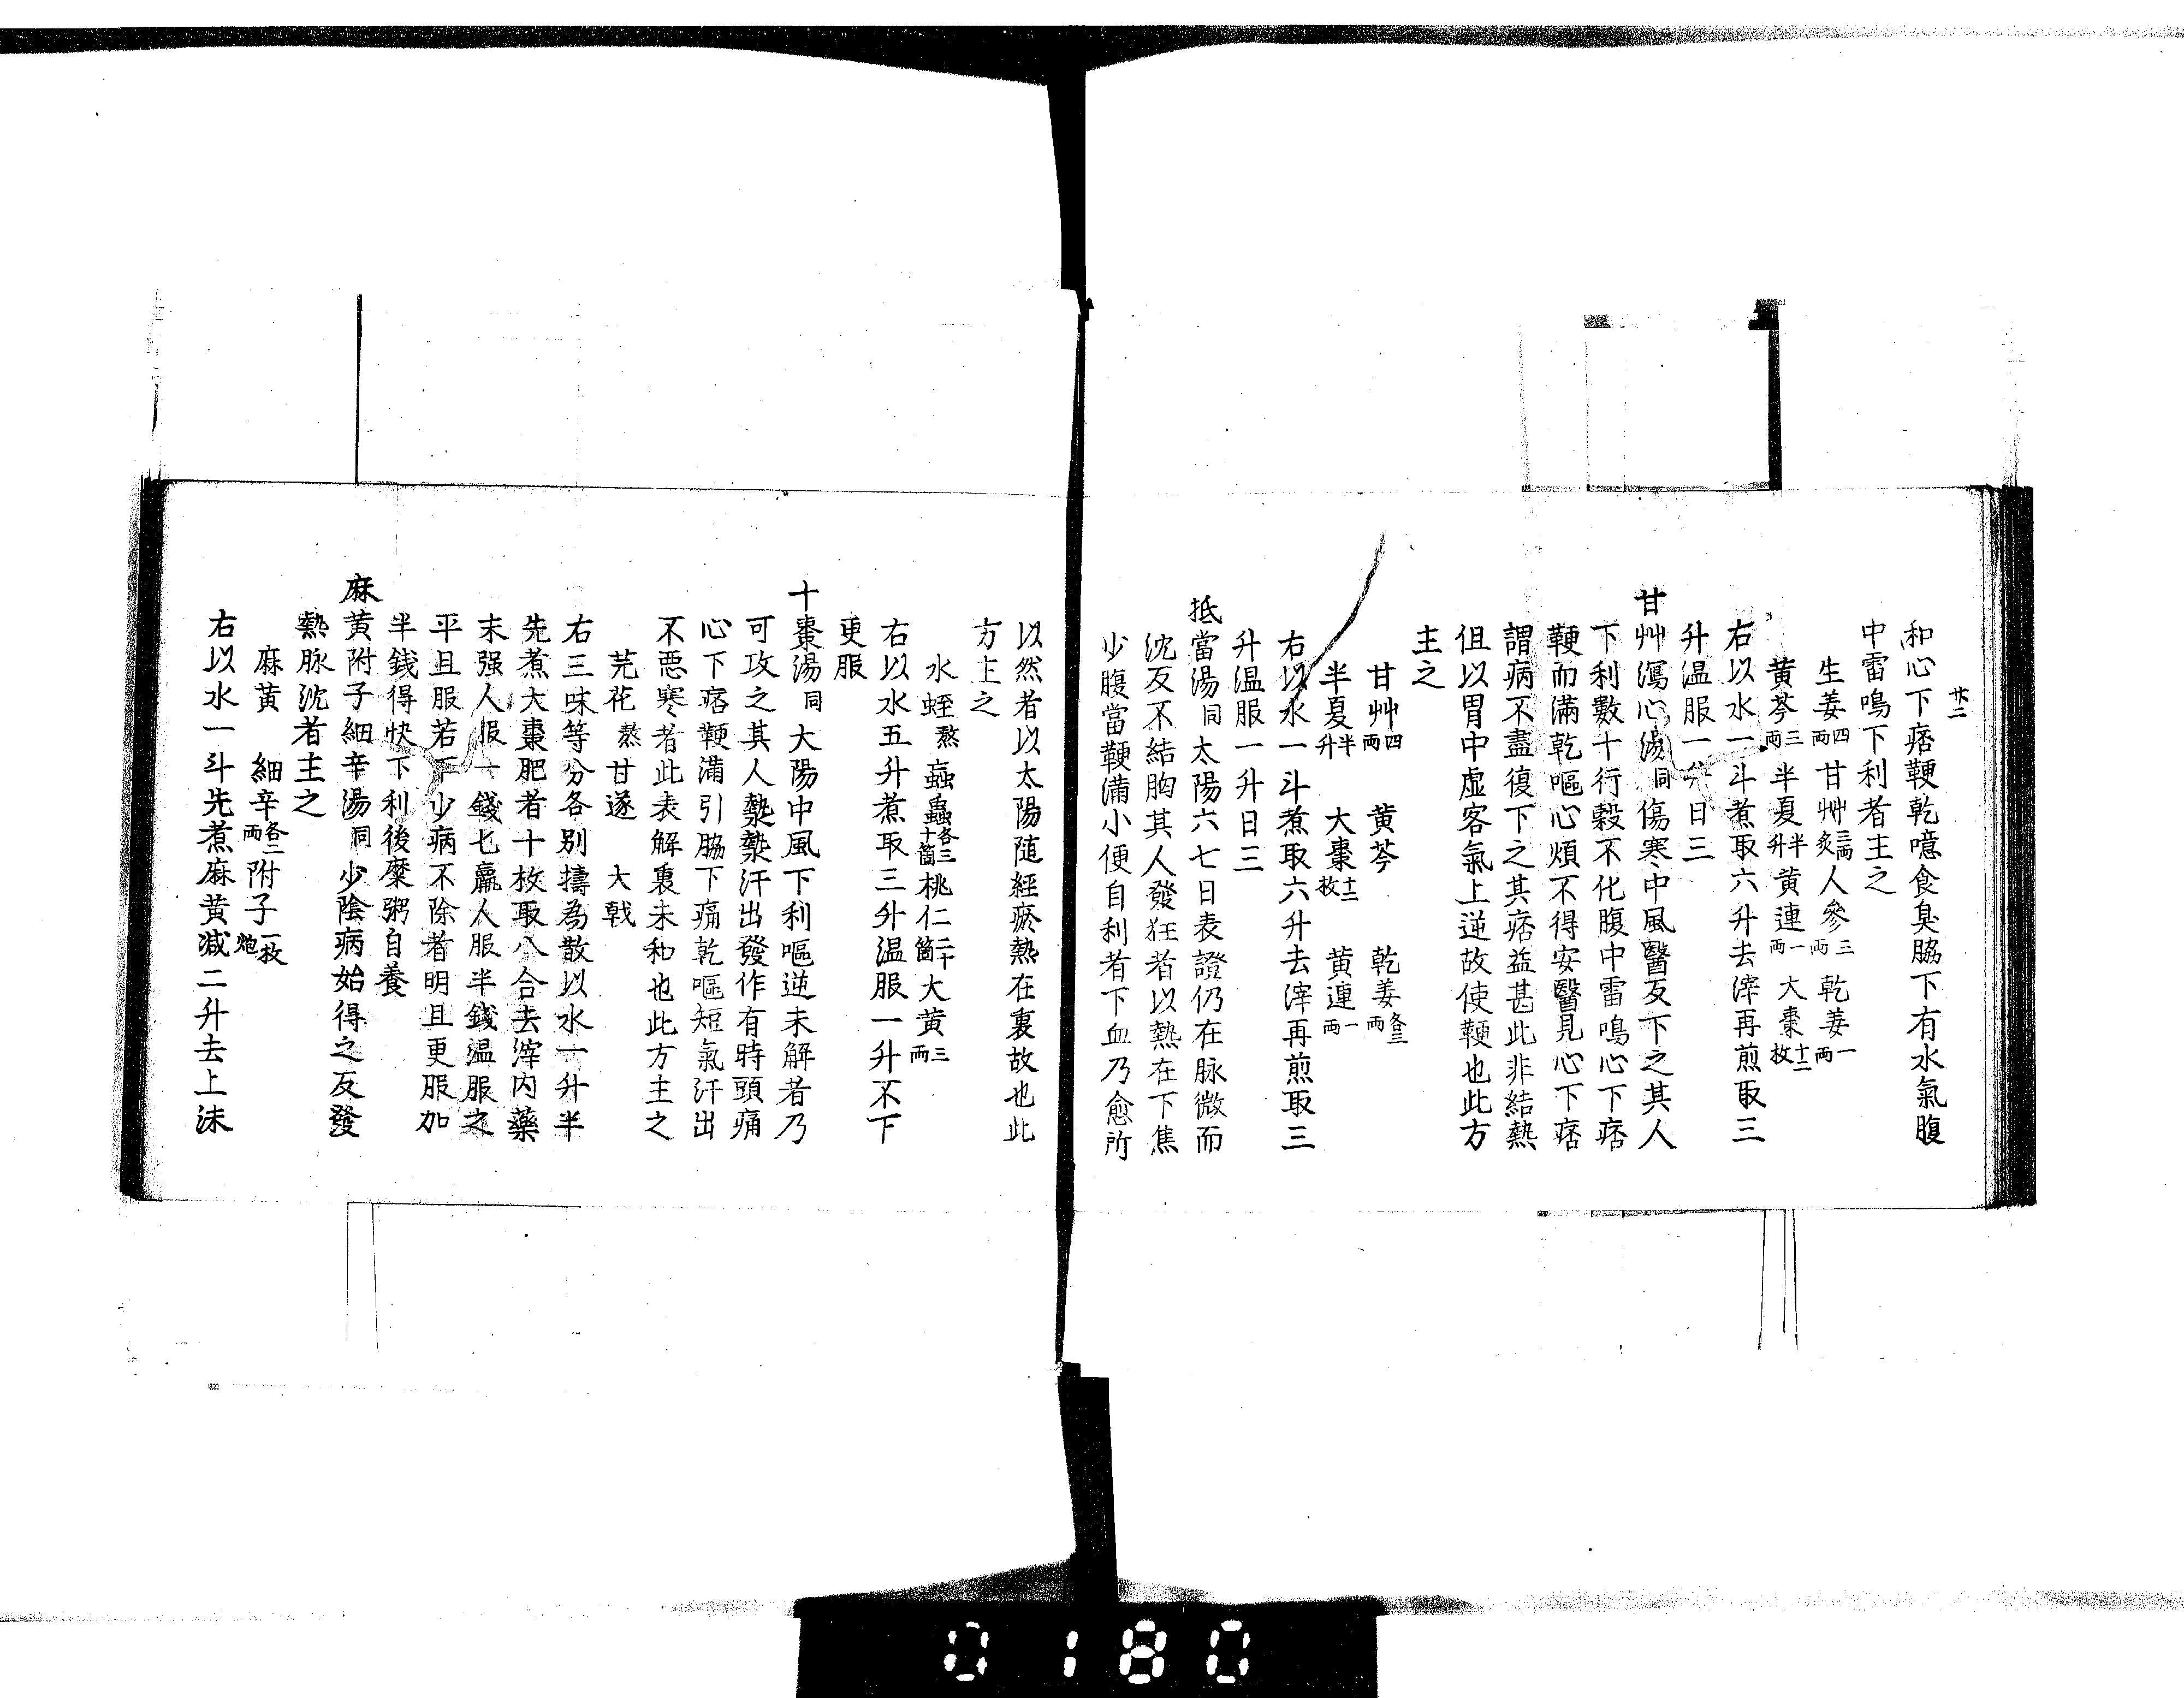 廿二
和心下痞鞕乾噫食臭脇下有水氣腹
中雷鳴下利者主之
生姜四両甘艸炙三両人參三両乾姜一両
黄芩三両半夏半升黄連一両大棗十二枚
右以水一斗煮取六升去滓再煎取三
升温服一升日三
甘艸瀉心湯同傷寒中風醫反下之其人
下利數十行穀不化腹中雷鳴心下痞
鞕而滿乾嘔心煩不得安醫見心下痞
謂病不盡復下之其痞益甚此非結熱
但以胃中虛客氣上逆故使鞕也此方
主之
甘艸四両 黄芩 乾姜各三両
半夏半升 大棗十二枚 黄連一両
右以水一斗煮取六升去滓再煎取三
升温服一升日三
抵當湯同太陽六七日表證仍在脉微而
沈反不結胸其人發狂者以熱在下焦
少腹當鞕滿小便自利者下血乃愈所
以然者以太陽随經瘀熱在裏故也此
方主之
水蛭熬蝱蟲各三十箇桃仁二十箇大黄三両
右以水五升煮取三升温服一升不下
更服
十棗湯同大陽中風下利嘔逆未解者乃
可攻之其人漐漐汗出發作有時頭痛
心下痞鞕滿引脇下痛乾嘔短氣汗出
不惡寒者此表解裏未和也此方主之
芫花熬 甘遂 大戟
右三味等分各別擣為散以水一升半
先煮大棗肥者十枚取八合去滓内藥
末强人服一錢匕羸人服半錢温服之
平旦服若下少病不除者明旦更服加
半銭得快下利後糜粥自養
麻黄附子細辛湯同少陰病始得之反發
熱脉沈者主之
麻黄 細辛各二両附子一枚炮
右以水一斗先煮麻黄減二升去上沫
0180